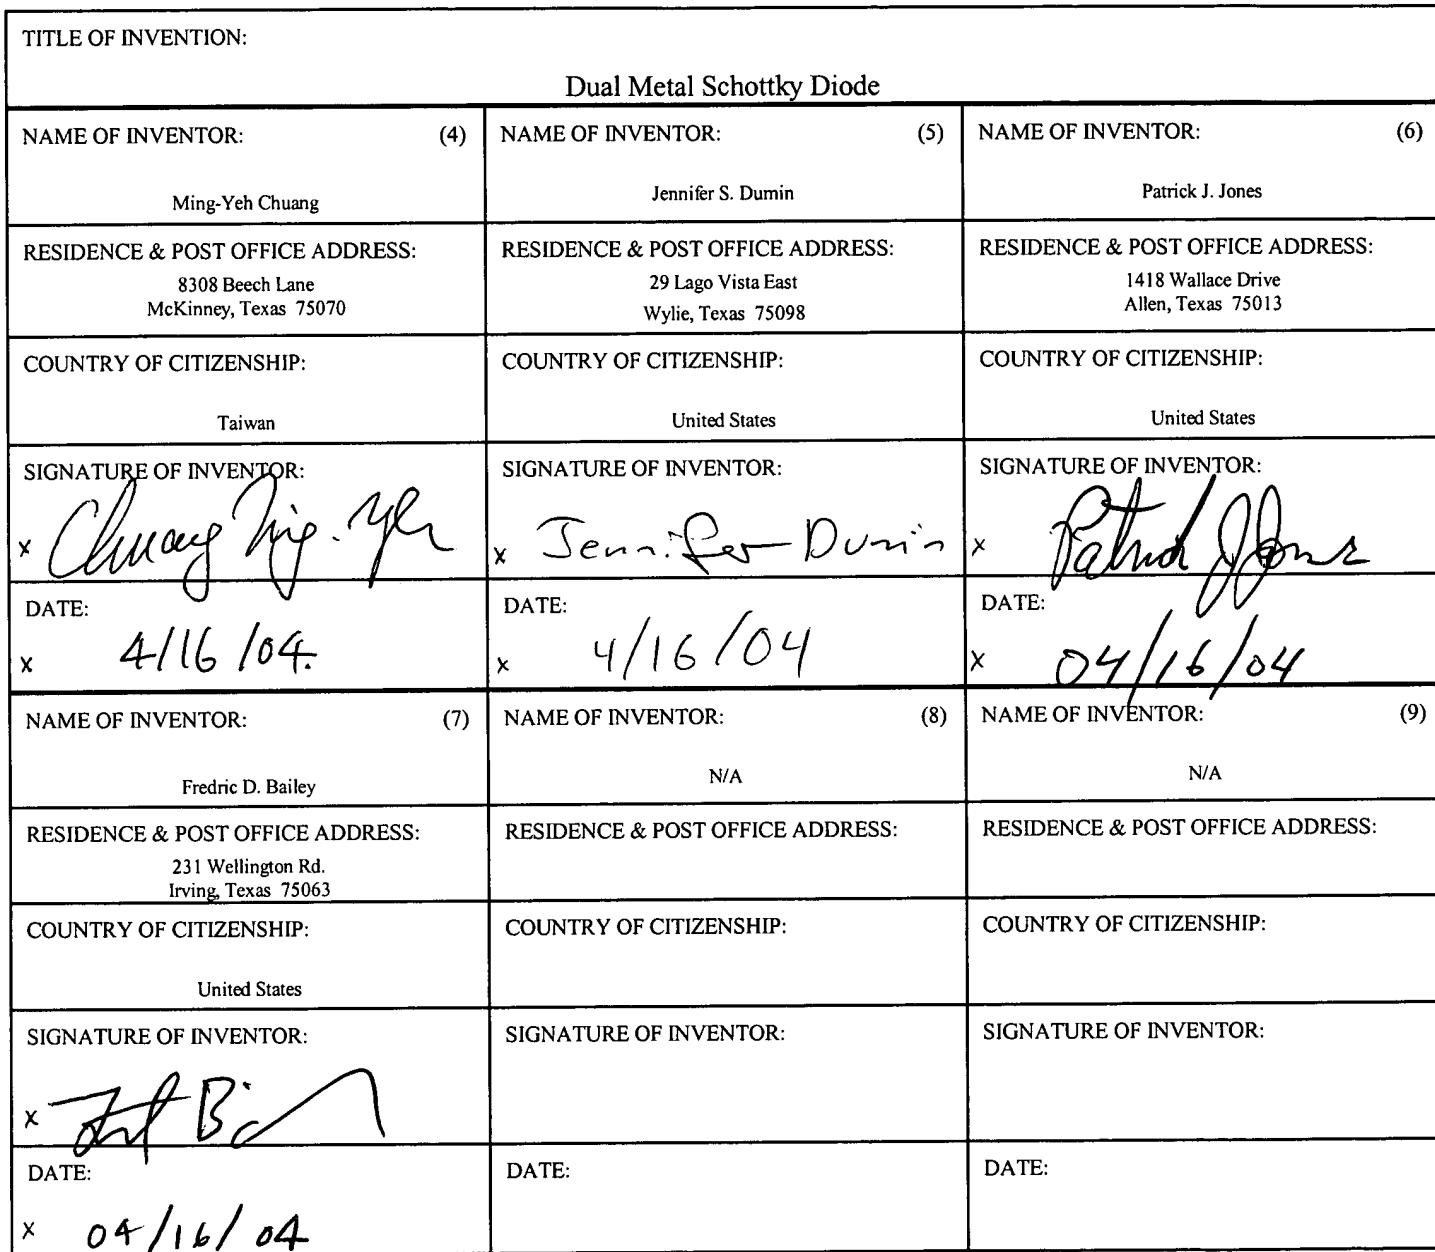 TITLE OF INVENTION:
Dual Metal Schottky Diode
NAME OF INVENTOR: (4)
Ming-Yeh Chuang
NAME OF INVENTOR: (5)
Jennifer S. Dumin
NAME OF INVENTOR: (6)
Patrick J. Jones
RESIDENCE & POST OFFICE ADDRESS:
8308 Beech Lane
McKinney, Texas 75070
RESIDENCE & POST OFFICE ADDRESS:
29 Lago Vista East
Wylie, Texas 75098
RESIDENCE & POST OFFICE ADDRESS:
1418 Wallace Drive
Allen, Texas 75013
COUNTRY OF CITIZENSHIP:
Taiwan
COUNTRY OF CITIZENSHIP:
United States
COUNTRY OF CITIZENSHIP:
United States
SIGNATURE OF INVENTOR:
x Chuang Ming-Yeh
SIGNATURE OF INVENTOR:
x Jennifer Dumin
SIGNATURE OF INVENTOR:
x Patrick J Jones
DATE:
x 4/16/04.
DATE:
x 4/16/04
DATE:
x 04/16/04
NAME OF INVENTOR: (7)
Fredric D. Bailey
NAME OF INVENTOR: (8)
N/A
NAME OF INVENTOR: (9)
N/A
RESIDENCE & POST OFFICE ADDRESS:
231 Wellington Rd.
Irving, Texas 75063
RESIDENCE & POST OFFICE ADDRESS:
RESIDENCE & POST OFFICE ADDRESS:
COUNTRY OF CITIZENSHIP:
United States
COUNTRY OF CITIZENSHIP:
COUNTRY OF CITIZENSHIP:
SIGNATURE OF INVENTOR:
x
SIGNATURE OF INVENTOR:
SIGNATURE OF INVENTOR:
DATE:
x 04/16/04
DATE:
DATE: